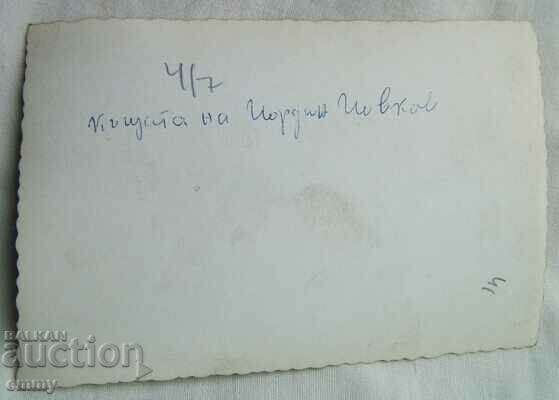 4/7
къщата на Йордан Йовков
41
BALKAN
auction
emmy